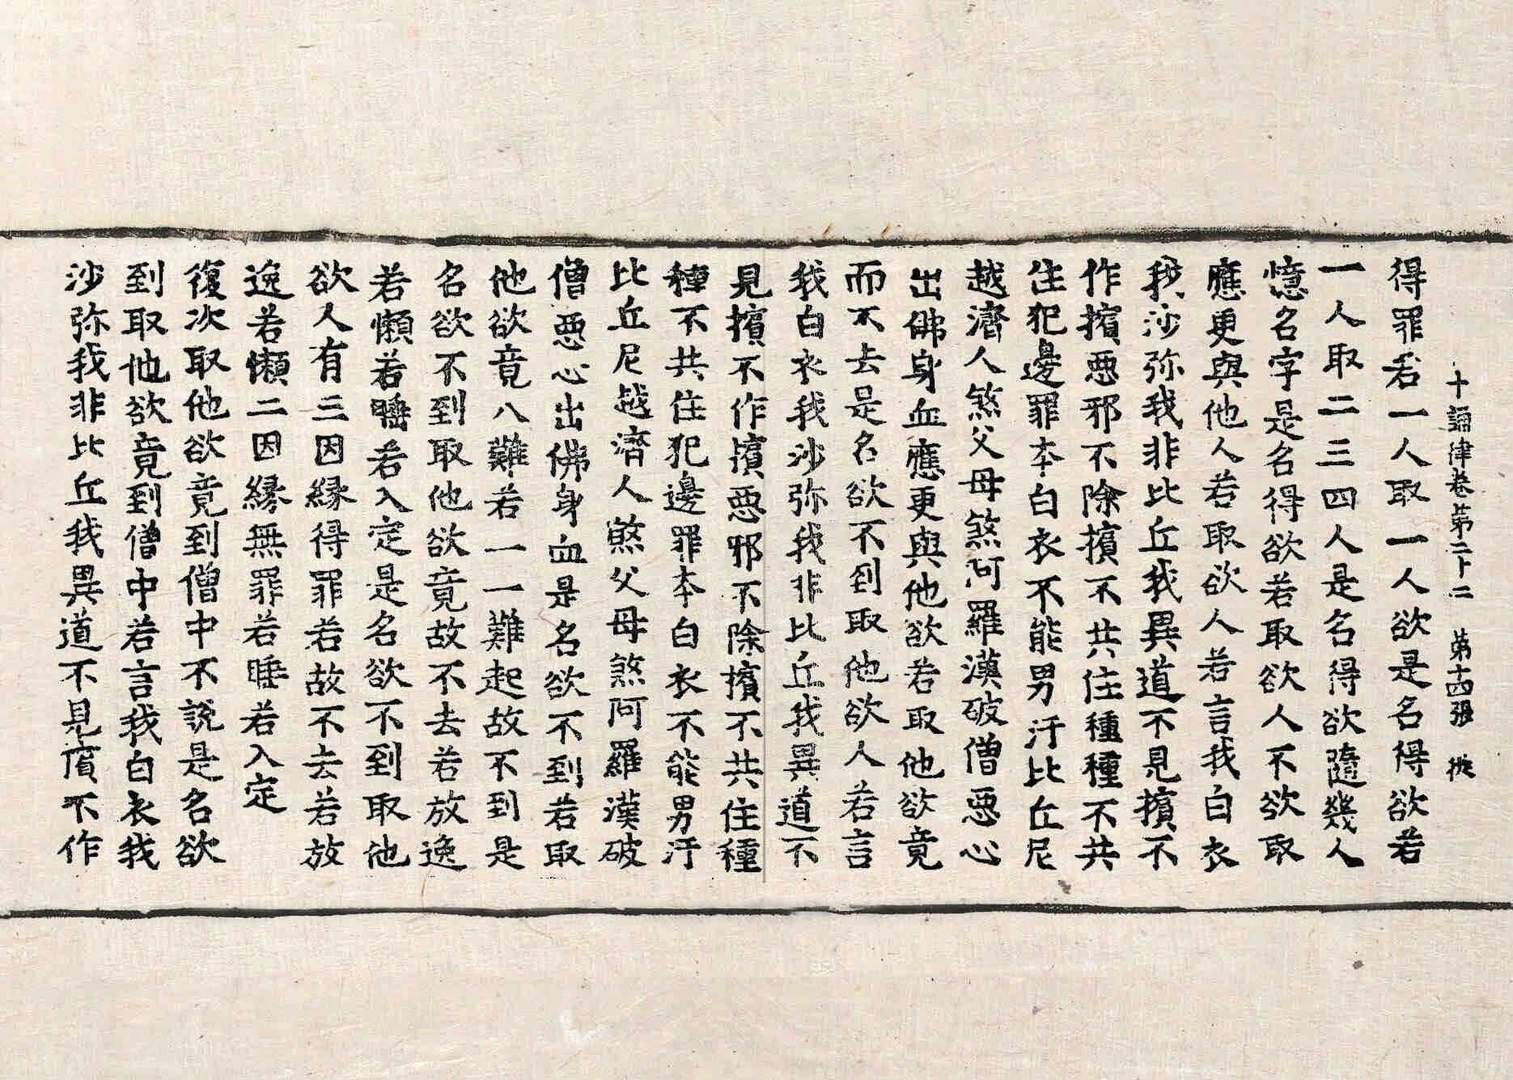 十誦律卷第二十二　第十四張　攸
得罪若一人取一人欲是名得欲若
一人取二三四人是名得欲隨幾人
憶名字是名得欲若取欲人不欲取
應更與他人若取欲人若言我白衣
我沙弥我非比丘我異道不見擯不
作擯惡邪不除擯不共住種種不共
住犯邊罪本白衣不能男汙比丘尼
越濟人煞父母煞阿羅漢破僧惡心
出佛身血應更與他欲若取他欲竟
而不去是名欲不到取他欲人若言
我白衣我沙弥我非比丘我異道不
見擯不作擯惡邪不除擯不共住種
種不共住犯邊罪本白衣不能男汙
比丘尼越濟人煞父母煞阿羅漢破
僧惡心出佛身血是名欲不到若取
他欲竟八難若一一難起故不到是
名欲不到取他欲竟故不去若放逸
若懶若睡若入定是名欲不到取他
欲人有三因緣得罪若故不去若放
逸若懶二因緣無罪若睡若入定
復次取他欲竟到僧中不說是名欲
到取他欲竟到僧中若言我白衣我
沙弥我非比丘我異道不見擯不作